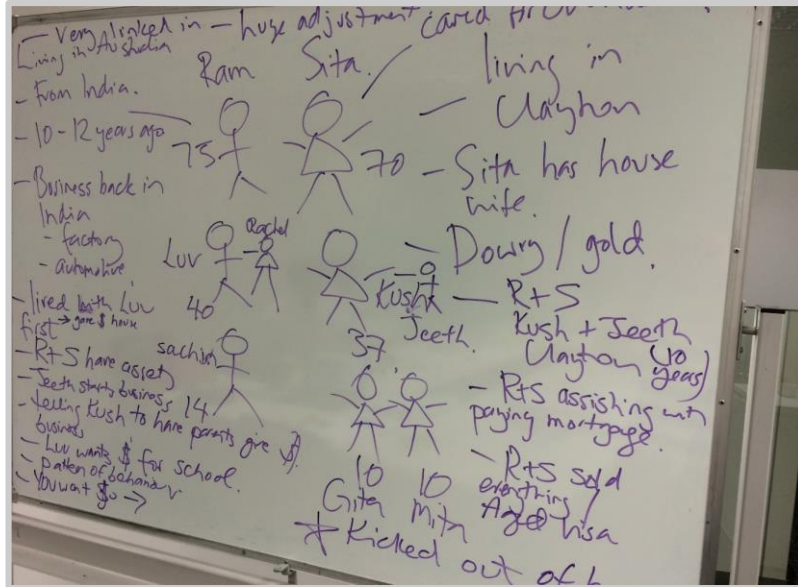 - Very linked in - huge adjustment cared
Living in Australia
- From India.
- 10-12 years ago
- Business back in
India
- factory
- automotive
- lived with Luv
first → gave $ house
- R+S have assets
- Jeeth starts business
- telling Kush to have parents give $
business
- Luv wants $ for school.
- pattern of behaviour
- You want $
Ram
Sita.
75
70
Luv
Rachel
40
Kush
Jeeth.
37
sachin
14
10
10
Gita
Mita
living in
Clayton
- Sita has house
wife.
- Dowry / gold.
- R+S
Kush + Jeeth
Clayton (10
years)
- R+S assisting with
paying mortgage.
- R+S sold
everything /
Aged visa
* Kicked out of h